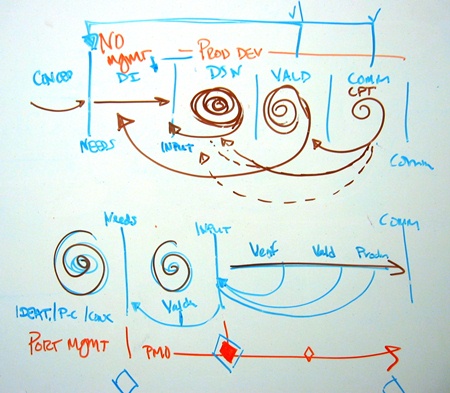 NO
MGMT = PROD DEV
DI DSN VALD COMM
CPT
NEEDS INPUT
COMM
NEEDS INPUT COMM
Verif Vald Prodn
PORT MGMT PMO